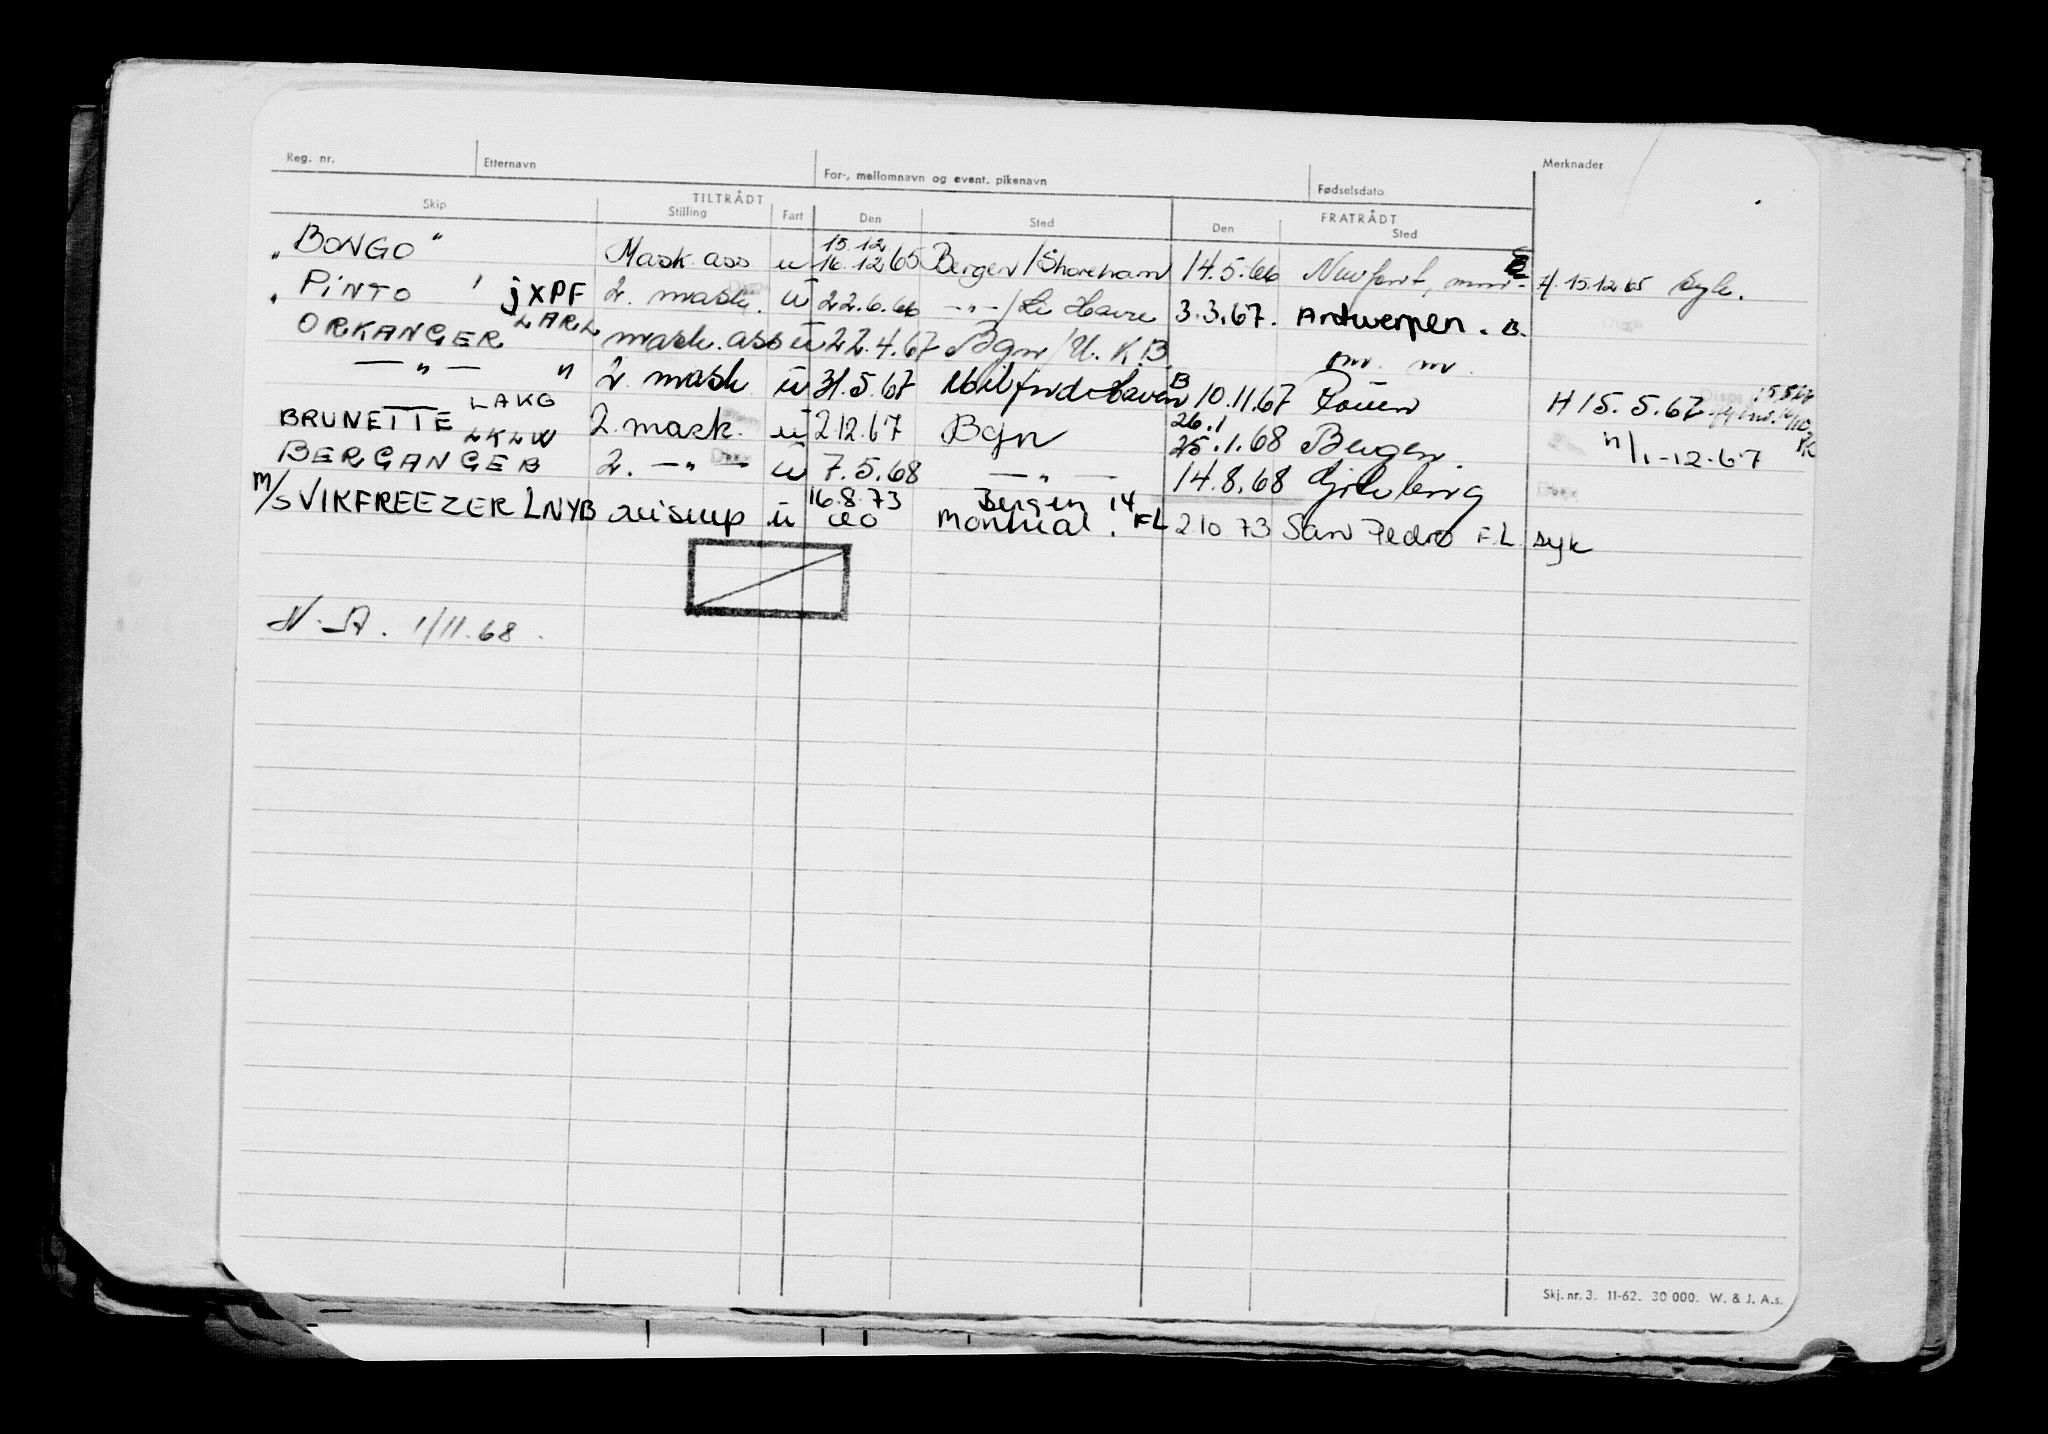 Reg. nr. Etternavn For-, mellomnavn og event. pikenavn Fødselsdato Merknader
TILTRÅDT FRATRÅDT
Skip Stilling Fart Den Sted Den Sted
"BONGO" Mask. ass u 15.12 16.12.65 Bergen/Shoreham 14.5.66 Newport, H. 15.12.65 Syk.
"PINTO" JXPF 2. mask. u 22.6.66 -"-/Le Havre 3.3.67. Antwerpen. B.
ORKANGER LARL mask. ass u 22.4.67 Bgn/U.K. B
-"- " 2. mask u 31.5.67 Milford Haven B 10.11.67 Rouen H 15.5.67
BRUNETTE LAKG 2. mask. u 2.12.67 Bgn 26.1 25.1.68 Bergen. H/1-12-67
BERGANGER LKLW 2. -"- u 7.5.68 -"- 14.8.68
M/S VIKFREEZER LNYB u 16.8.73 Bergen 14 Montreal. FL 2.10 73 San Pedro F.L. syk
N.A. 1/11.68.
Skj. nr. 3. 11-62. 30 000. W. & J. A.s.